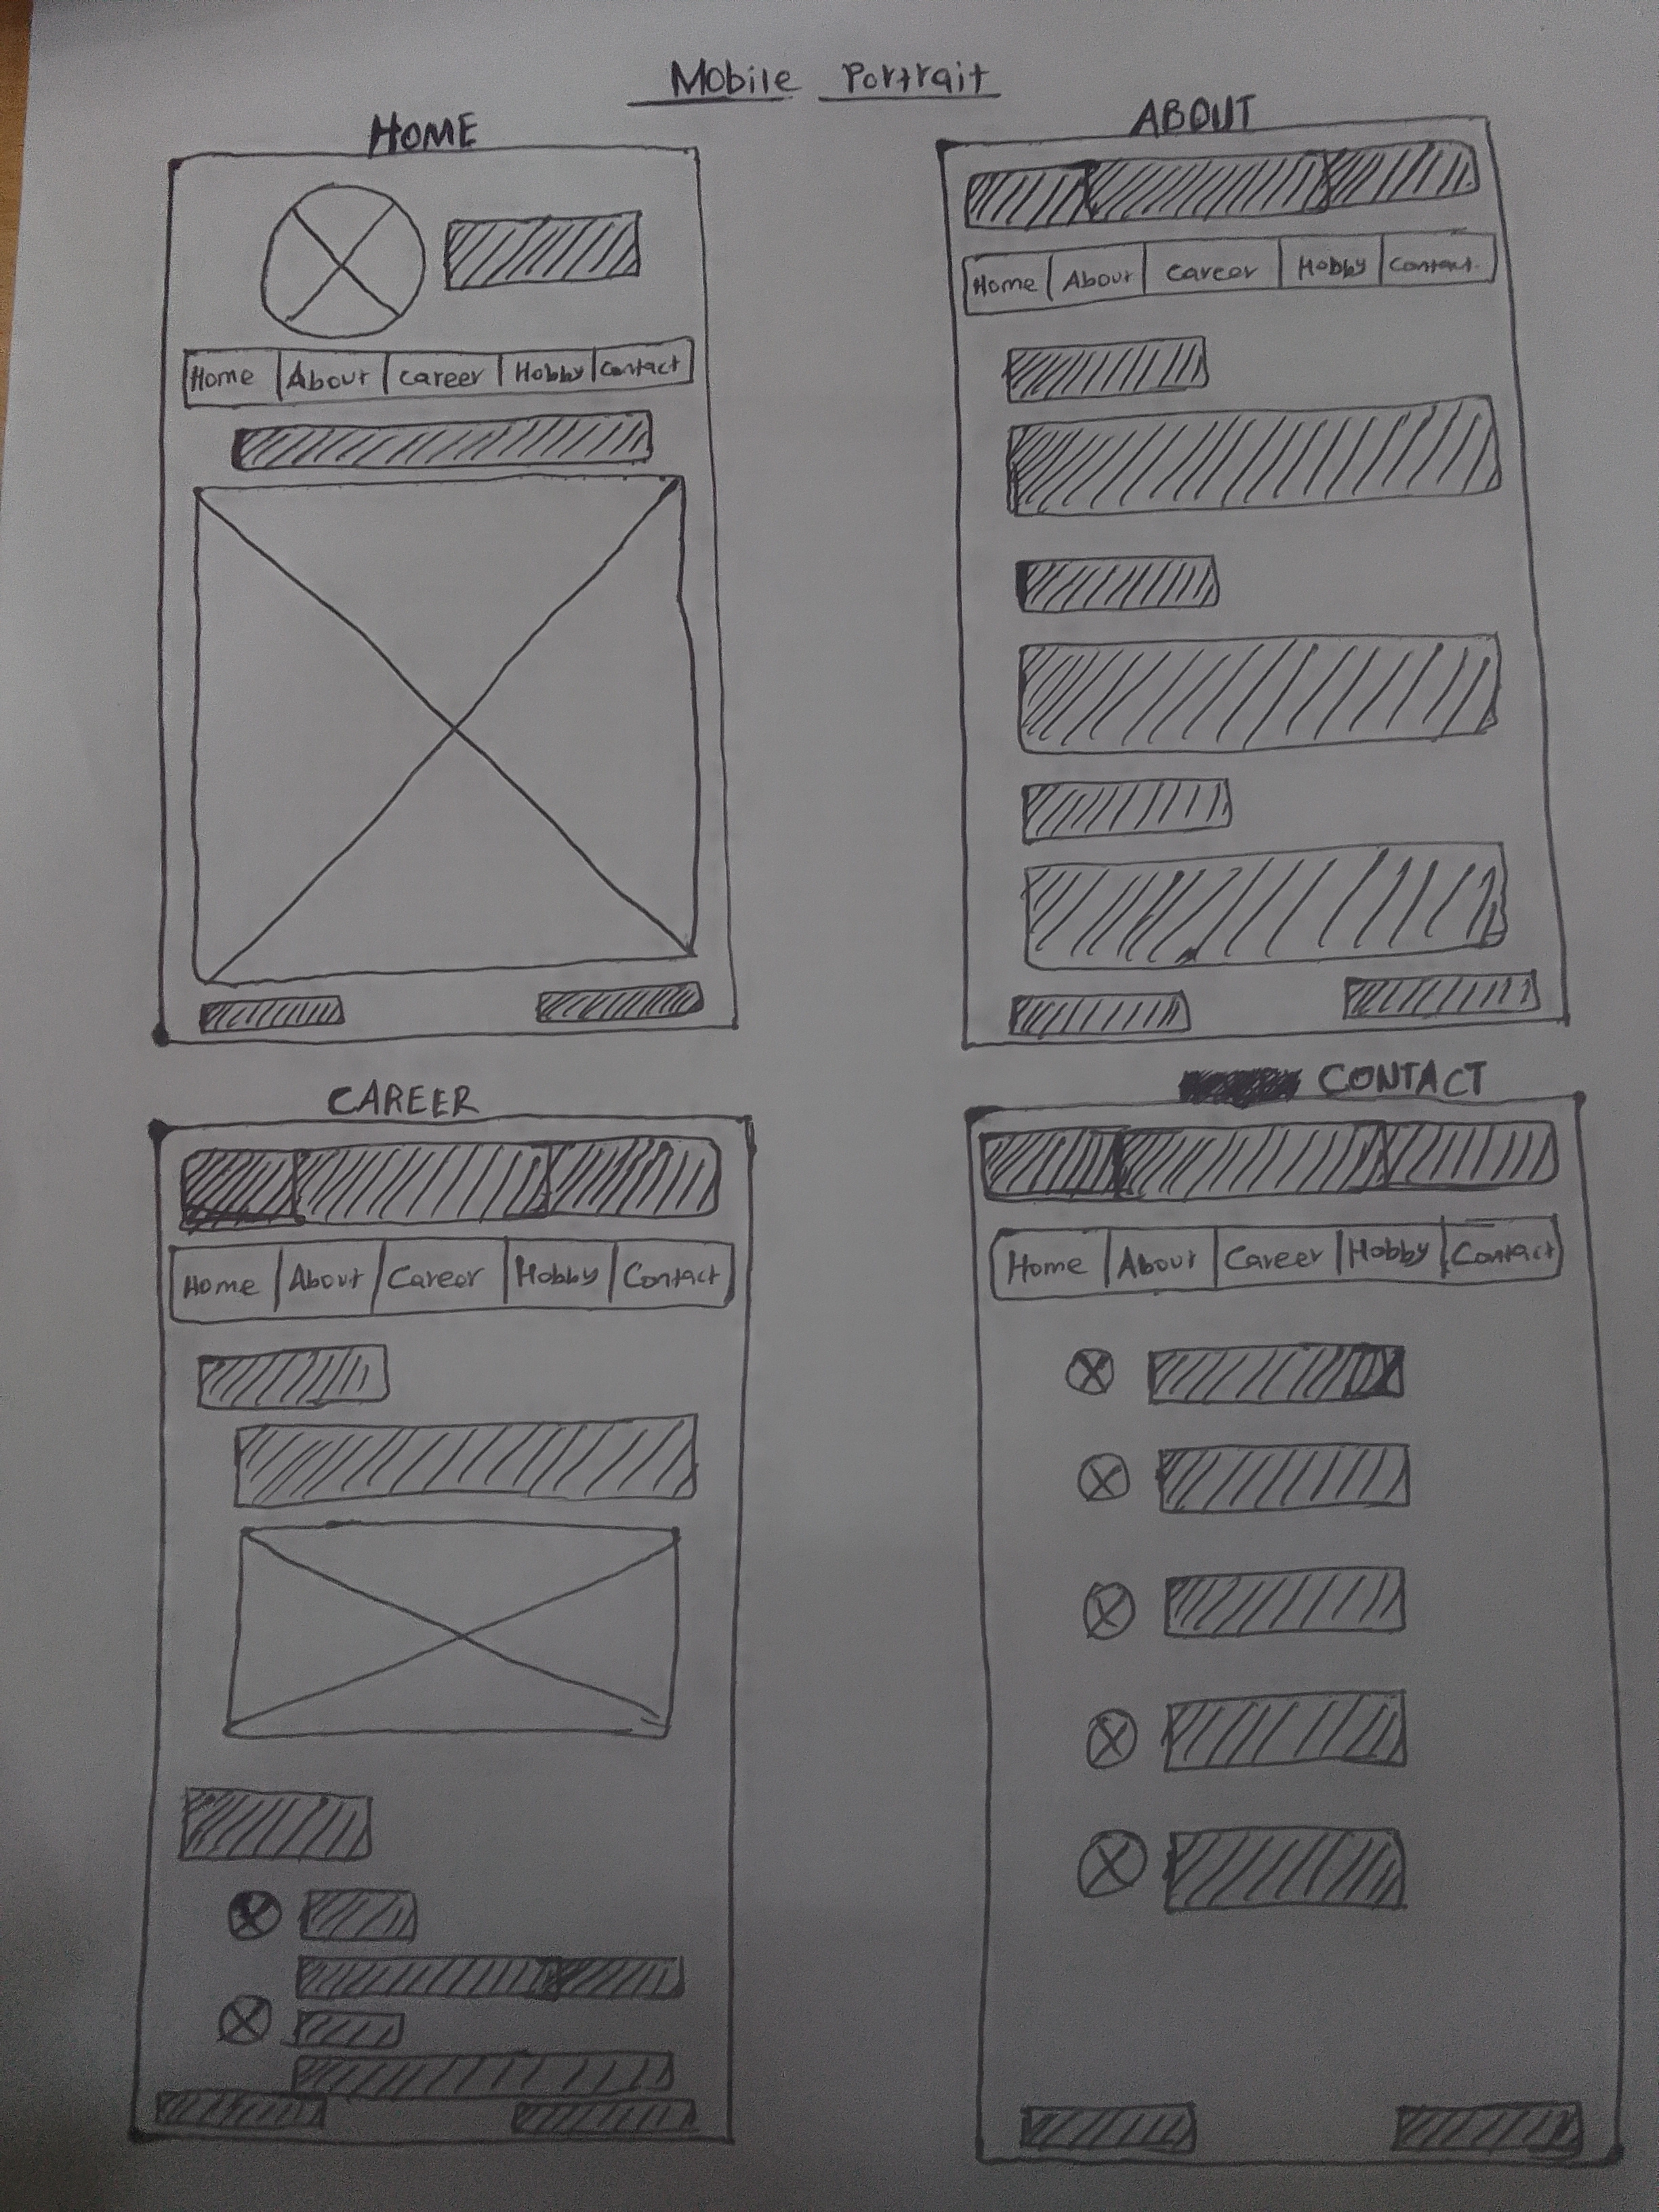 Mobile Portrait
HOME
Home About career Hobby Contact
ABOUT
Home About career Hobby Contact
CAREER
Home About Career Hobby Contact
CONTACT
Home About Career Hobby Contact